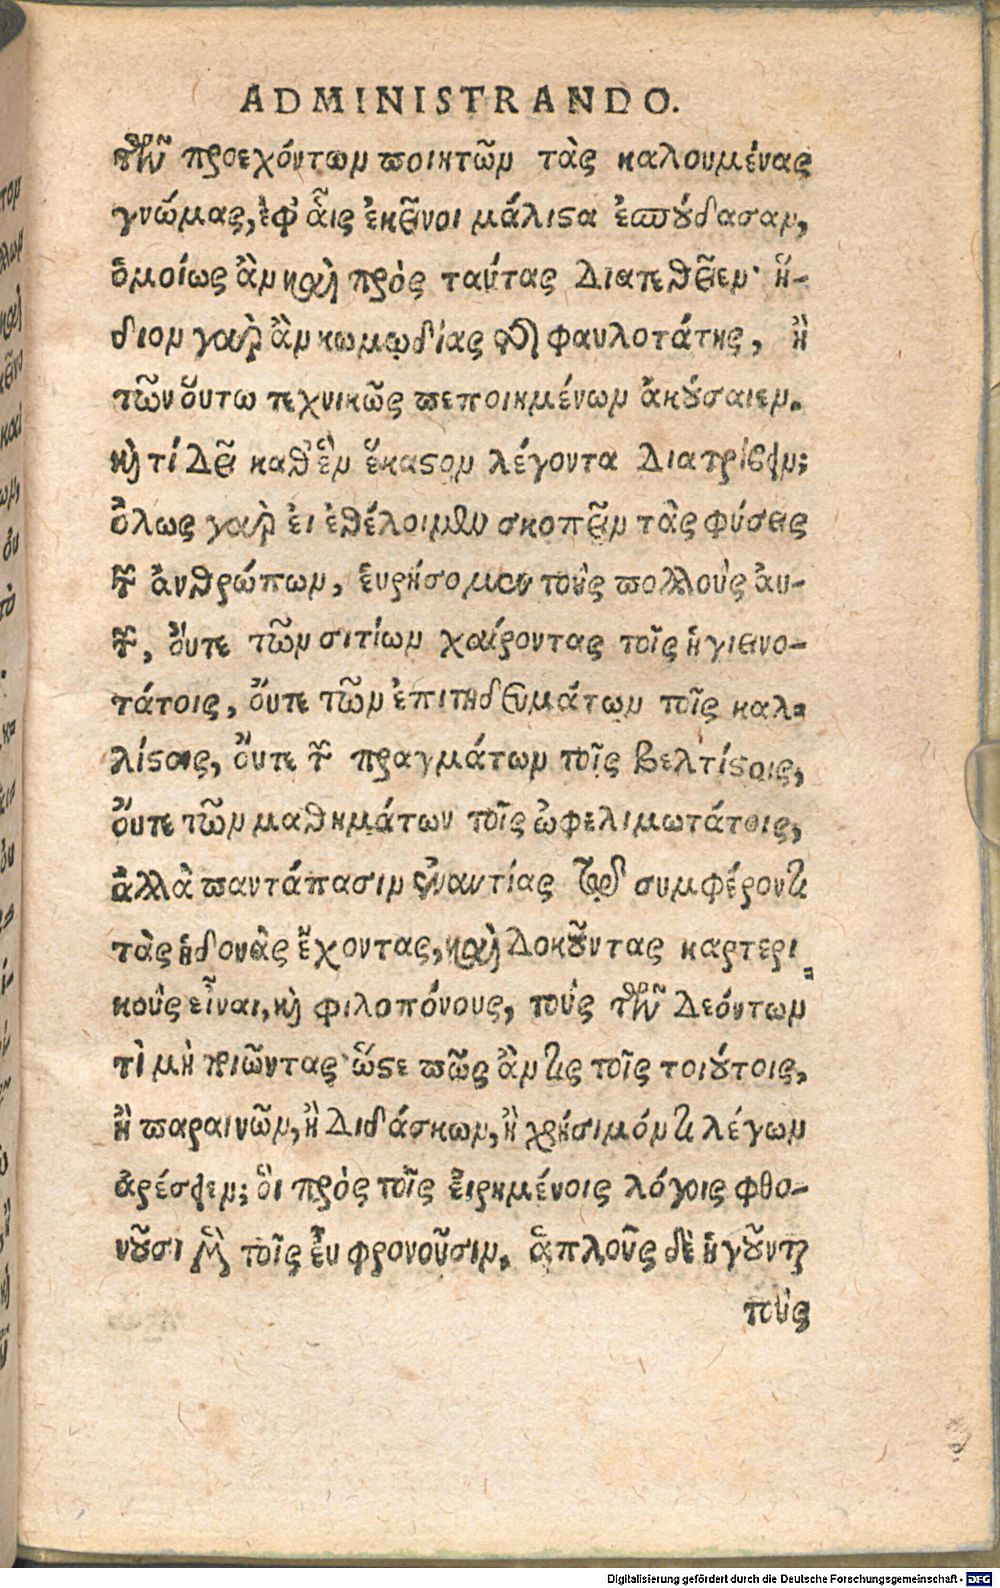 ADMINISTRANDO.
τῶν προεχόντων ποιητῶν τὰς καλουμένας
γνώμας, ἐφ᾽ ἇις ἐκεῖνοι μάλιστα ἐσπούδασαν,
ὁμοίως ἂν καὶ πρὸς ταύτας διατεθεῖεν· ἥ-
διον γαρ ἂν κωμῳδίας τῆς φαυλοτάτης, ἢ
τῶν ὅυτω τεχνικῶς πεποιημένων ἀκούσαιεν.
καὶ τί δεῖ καθ᾽ ἓν ἕκαστον λέγοντα διατρίβειν;
ὅλως γαρ ἐι ἐθέλοιμεν σκοπεῖν τὰς φύσεις
τῶν ἀνθρώπων, ἑυρήσομεν τοὺς πολλοὺς ἀυ-
τῶν, ὄυτε τῶν σιτίων χαίροντας τοῖς ὑγιεινο-
τάτοις, ὄυτε τῶν ἐπιτηδευμάτων τοῖς καλ-
λίστοις, ὄυτε τῶν πραγμάτων τοῖς βελτίστοις,
ὄυτε τῶν μαθημάτων τοῖς ὠφελιμωτάτοις,
ἀλλὰ παντάπασιν ἐναντίας τῷ συμφέροντι
τὰς ἡδονὰς ἔχοντας, καὶ δοκοῦντας καρτερι-
κοὺς εἶναι, καὶ φιλοπόνους, τοὺς τῶν δεόντων
τὶ μὴ ποιῶντας· ὥστε πῶς ἄν τις τοῖς τοιούτοις,
ἢ παραινῶν, ἢ διδάσκων, ἢ χρήσιμόν τι λέγων
ἀρέσειεν; ὃι πρὸς τοῖς ἐιρημένοις λόγοις φθο-
νοῦσι μὲν τοῖς ἐυ φρονοῦσιν, ἁπλοῦς δὲ ἡγοῦνται
τοὺς
Digitalisierung gefördert durch die Deutsche Forschungsgemeinschaft - DFG